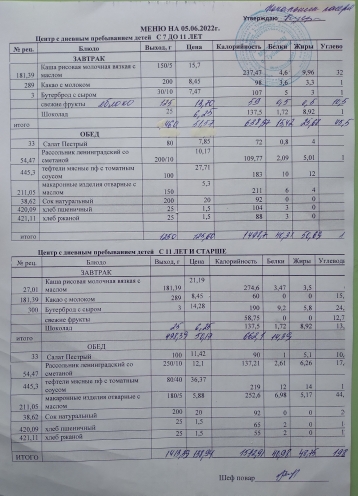 Утверждаю
МЕНЮ НА 05.06.2022г.
Центр с дневным пребыванием детей С 7 ДО 11 ЛЕТ
№ рец. Блюдо Выход, г Цена Калорийность Белки Жиры Углево
ЗАВТРАК
181,39 Каша рисовая молочная вязкая с маслом 150/5 15,7 237,47 4,6 9,96 32
289 Какао с молоком 200 8,45 98 3,6 3,3 1
3 Бутерброд с сыром 30/10 7,47 107 5 3 1
свежие фрукты яблоко 125
Шоколад 25 6,25 137,5 1,72 8,92 1
итого
ОБЕД
33 Салат Пестрый 80 7,85 72 0,8 4
54,47 Рассольник ленинградский со сметаной 200/10 10,17 109,77 2,09 5,01 1
445,3 тефтели мясные пф с томатным соусом 100 27,71 183 10 12
211,05 макаронные изделия отварные с маслом 150 5,3 211 6 4
38,62 Сок натуральный 200 20 92 0 0
420,09 хлеб пшеничный 25 1,5 104 3 0
421,11 хлеб ржаной 25 1,5 88 3 0
итого
Центр с дневным пребыванием детей С 11 ЛЕТ И СТАРШЕ
№ рец. Блюдо Выход, г Цена Калорийность Белки Жиры Углевода
ЗАВТРАК
27,01 Каша рисовая молочная вязкая с маслом 181,39 21,19 274,6 3,47 3,5
181,39 Какао с молоком 289 8,45 60 0 0 15,
300 Бутерброд с сыром 3 14,28 190 9,2 5.8 24,
свежие фрукты 58,75 0 0 12,7
Шоколад 25 6,25 137,5 1,72 8,92 13,
итого
ОБЕД
33 Салат Пестрый 100 11,42 90 1 5,1 10,
54,47 Рассольник ленинградский со сметаной 250/10 12,1 157,21 2,61 6,26 17,
445,3 тефтели мясные пф с томатным соусом 80/40 36,37 219 12 14 1
211,05 макаронные изделия отварные с маслом 180/5 5,88 252,6 6,98 5,17 44,
38,62 Сок натуральный 200 20 92 0 0 2
420,09 хлеб пшеничный 25 1,5 65 2 0 1
421,11 хлеб ржаной 25 1,5 55 2 0 1
ИТОГО
Шеф повар